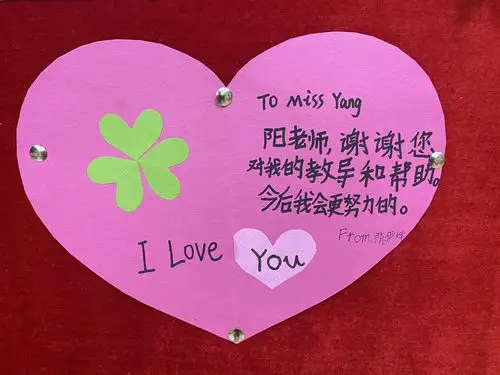 To Miss Yang
阳老师,谢谢您
对我的教导和帮助。
今后我会更努力的。
From
I Love You